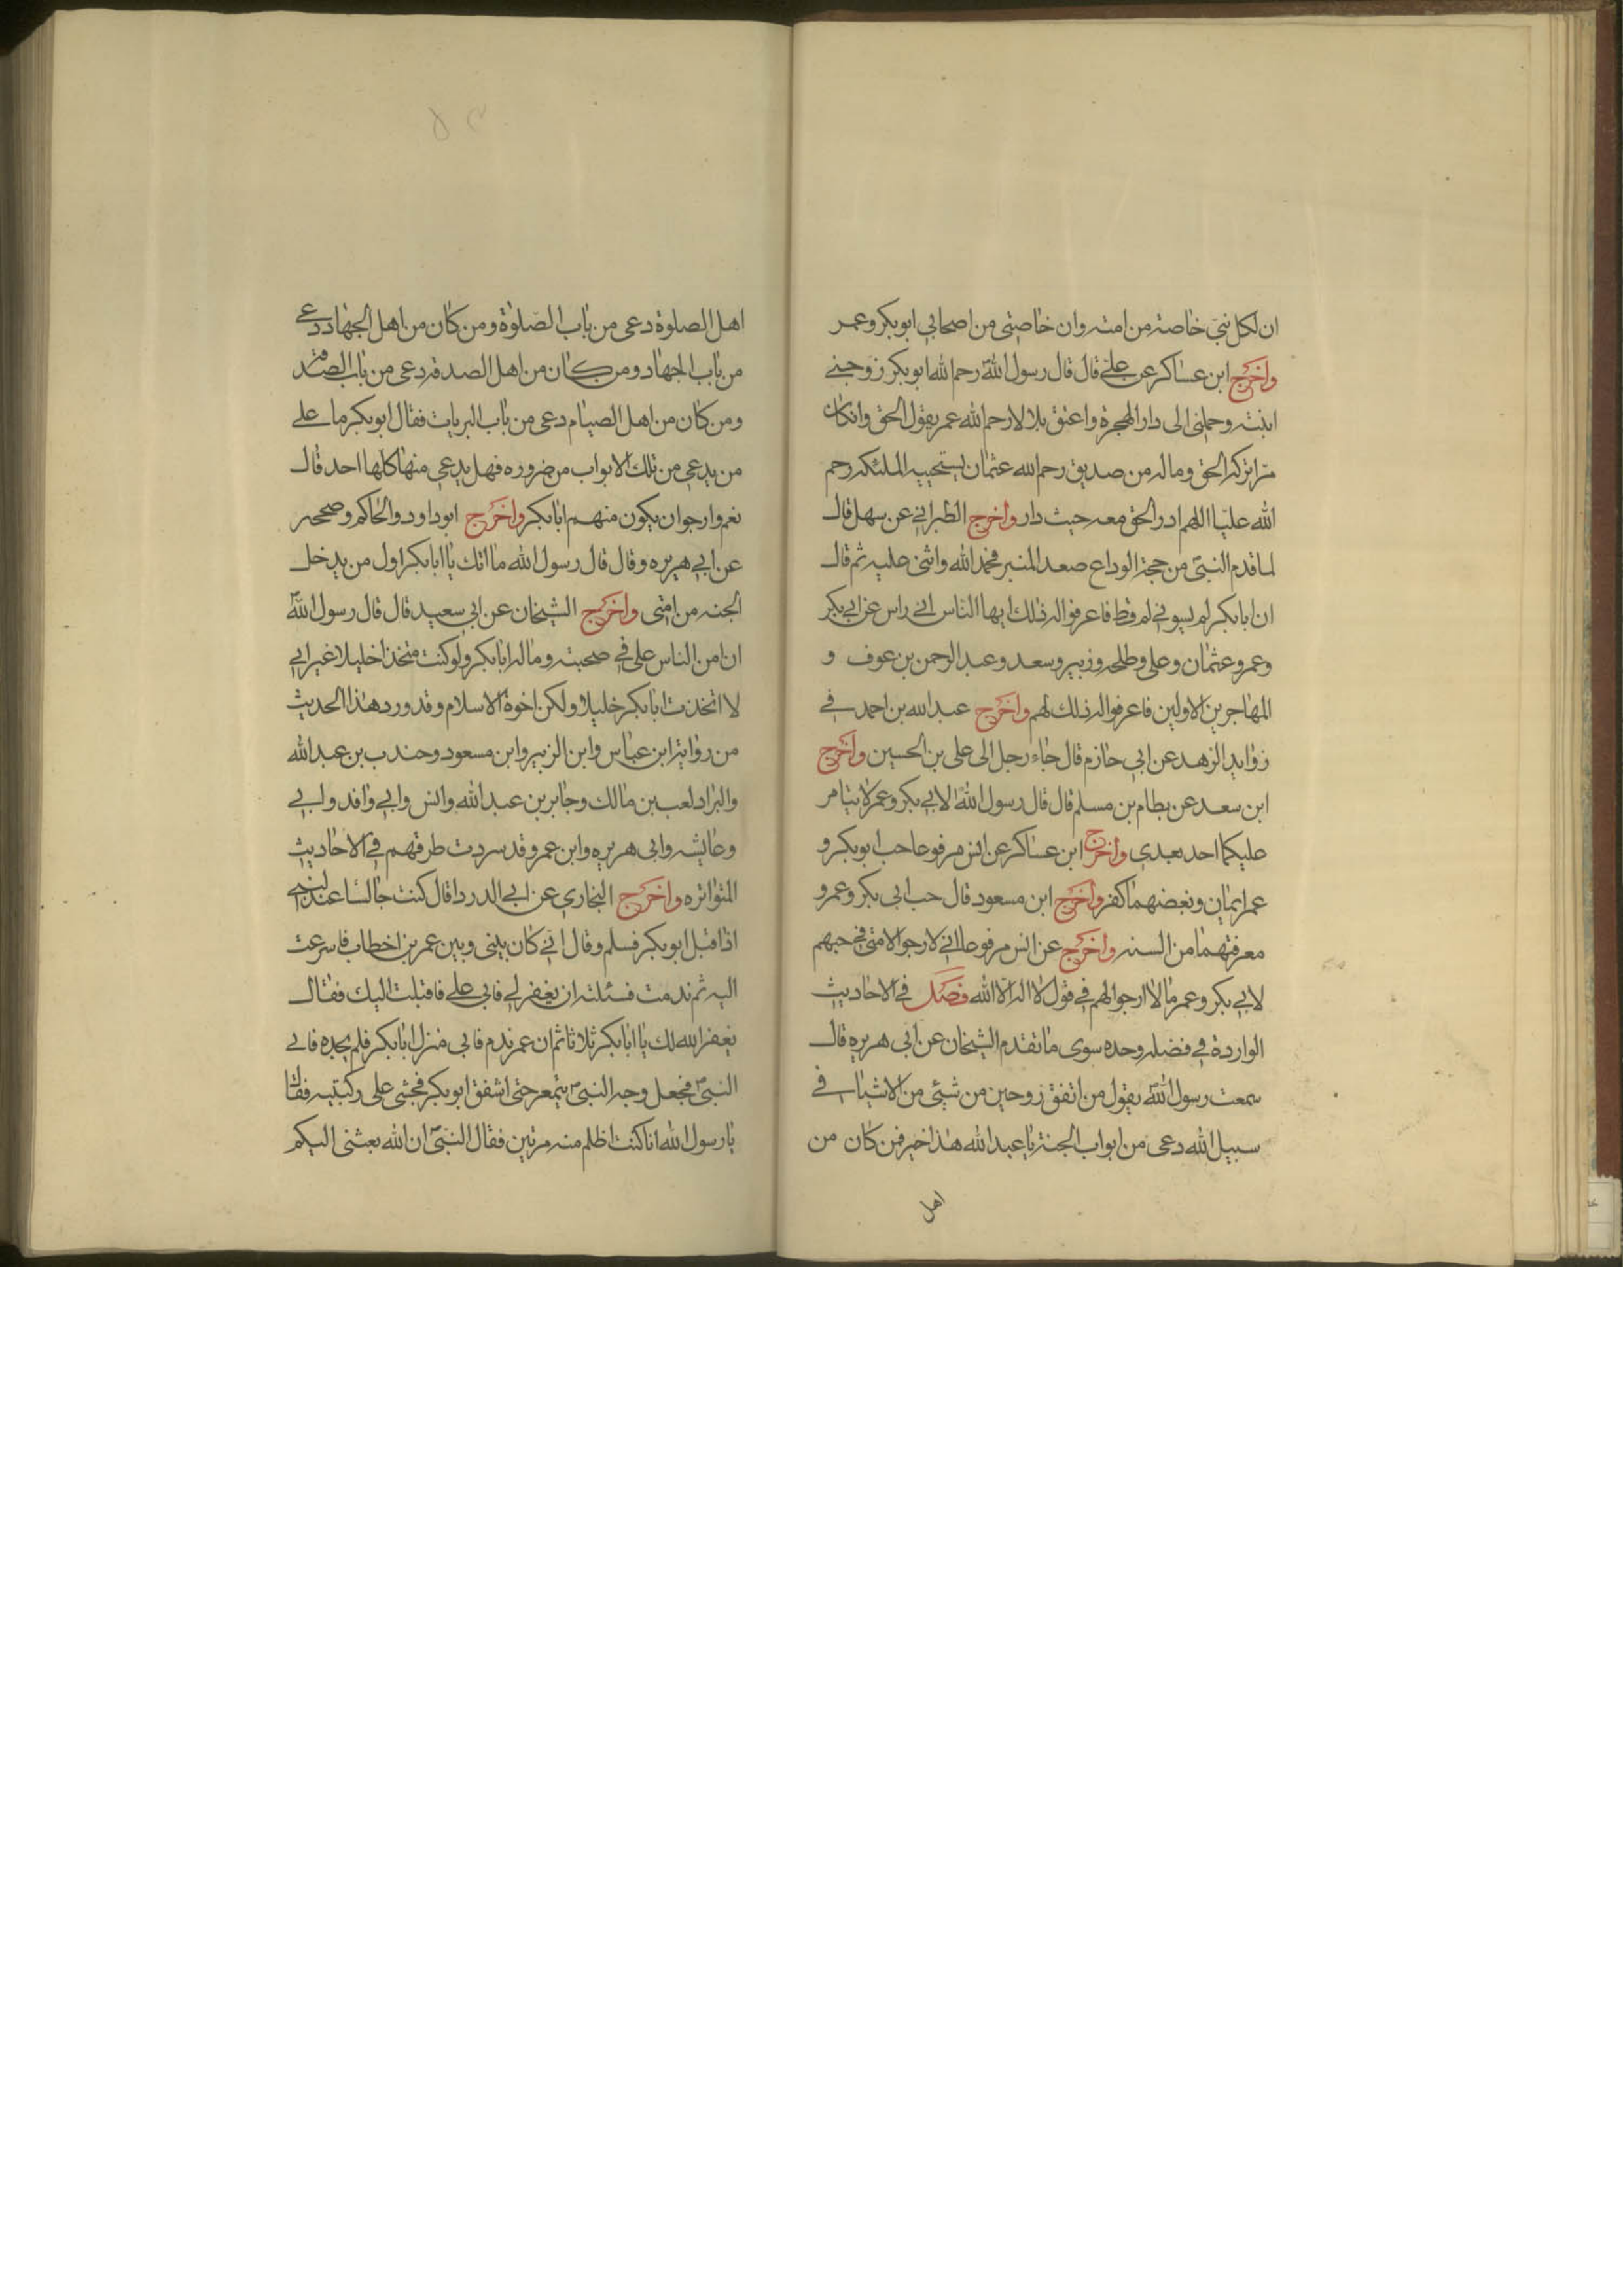 ان لكل نبي خاصة من امته وان خاصتي من اصحابي ابو بكر وعمر
واخرج ابن عساكر عن علي قال قال رسول الله رحم الله ابو بكر زوجني
ابنته وحملني الى دار الهجرة واعتق بلالا رحم الله عمر يقول الحق وان كان
مرا تركه الحق وماله من صديق رحم الله عثمان يستحييه الملئكه رحم
الله عليا اللهم ادر الحق معه حيث دار واخرج الطبراني عن سهل قال
لما قدم النبي من حجة الوداع صعد المنبر فحمد الله واثنى عليه ثم قال
ان ابا بكر لم يسوني قط فاعرفوا له ذلك ايها الناس اني راض عن ابي بكر
وعمر وعثمان وعلي وطلحه وزبير وسعد وعبد الرحمن بن عوف و
المهاجرين الاولين فاعرفوا له ذلك لهم واخرج عبد الله بن احمد في
زوايد الزهد عن ابي حازم قال جاء رجل الى علي بن الحسين واخرج
ابن سعد عن بطام بن مسلم قال قال رسول الله لابي بكر وعمر لا يتامر
عليكما احد بعدي واخرج ابن عساكر عن انس مرفوعا حب ابو بكر و
عمر ايمان وبغضهما كفر واخرج ابن مسعود قال حب ابي بكر وعمر و
معرفتهما من السنه واخرج عن انس مرفوعا اني لارجو لامتي في حبهم
لابي بكر وعمر ما لا ارجو لهم في قول لا اله الا الله فصل في الاحاديث
الواردة في فضله وحده سوى ما تقدم الشيخان عن ابي هريره قال
سمعت رسول الله يقول من انفق زوجين من شيئ من الاشيا في
سبيل الله دعي من ابواب الجنة يا عبد الله هذا خير فمن كان من
اهل
اهل الصلوة دعي من باب الصلوة ومن كان من اهل الجهاد دعي
من باب الجهاد ومن كان من اهل الصدقه دعي من باب الصدقه
ومن كان من اهل الصيام دعي من باب الريات فقال ابو بكر ما علي
من يدعي من تلك الابواب من ضروره فهل يدعي منها كلها احد قال
نعم وارجو ان يكون منهم ابا بكر واخرج ابو داود والحاكم وصححه
عن ابي هريره وقال قال رسول الله ما انك يا ابا بكر اول من يدخل
الجنه من امتي واخرج الشيخان عن ابي سعيد قال قال رسول الله
ان امن الناس علي في صحبته وماله ابا بكر ولو كنت متخذا خليلا غير ابي
لا اتخذت ابا بكر خليلا ولكن اخوة الاسلام وقد ورد هذا الحديث
من رواية ابن عباس وابن الزبير وابن مسعود وجندب بن عبد الله
والبراد لعب بن مالك وجابر بن عبد الله وانس وابي واقد وابي
وعايشه وابي هريره وابن عمر وقد سردت طرقهم في الاحاديث
المتواتره واخرج البخاري عن ابي الدردا قال كنت جالسا عند النبي
اذا قبل ابو بكر فسلم وقال اني كان بيني وبين عمر بن اخطاب فاسرعت
اليه ثم ندمت فسئلته ان يغفر لي فابى علي فاقبلت اليك فقال
يغفر الله لك يا ابا بكر ثلاثا ثم ان عمر ندم فاتى منزل ابا بكر فلم يجده فاتى
النبي فجعل وجه النبي يتمعر حتى اشفق ابو بكر فجثى على ركبتيه فقال
يا رسول الله انا كنت اظلم منه مرتين فقال النبي ان الله بعثني اليكم